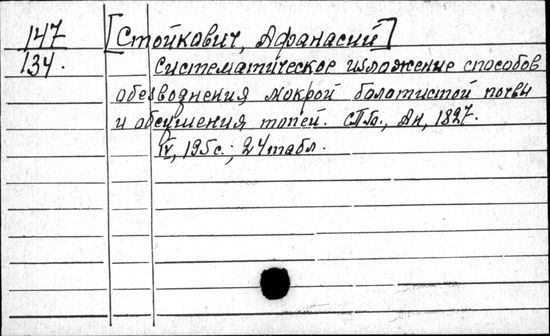 147 [Стойкович, Афанасий]
134. Систематическое изложение способов
обезводнения мокрой болотистой почвы
и обсушения топей. СПб., Ан, 1827.
IV, 195с.; 24табл.